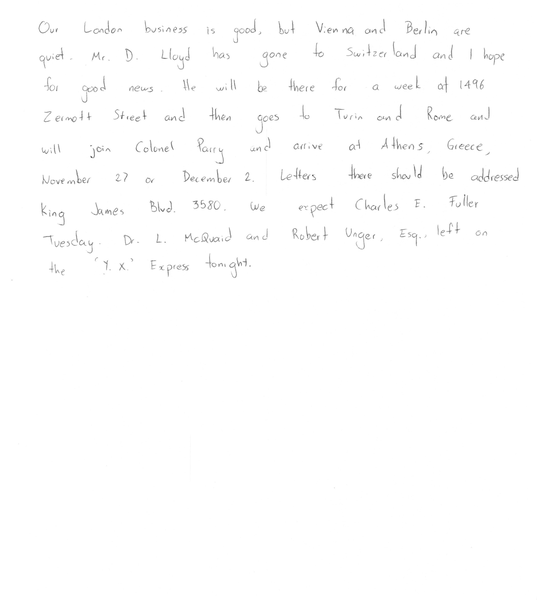 Our London business is good, but Vienna and Berlin are
quiet. Mr. D. Lloyd has gone to Switzerland and I hope
for good news. He will be there for a week at 1496
Zermott Street and then goes to Turin and Rome and
will join Colonel Parry and arrive at Athens, Greece,
November 27 or December 2. Letters there should be addressed
King James Blvd. 3580. We expect Charles E. Fuller
Tuesday. Dr. L. McQuaid and Robert Unger, Esq., left on
the 'Y. X.' Express tonight.